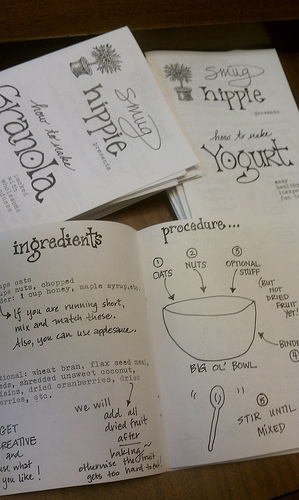 smug
hippie
presents
how to make
Granola
packed
with
wholesome
smug
hippie
presents
how to make
Yogurt
easy
ingredients
ups oats
ups nuts, chopped
1 cup honey, maple syrup, etc.
If you are running short,
mix and match these.
Also, you can use applesauce.
tional: wheat bran, flax seed meal,
eds, shredded unsweet coconut,
isins, dried cranberries, dried
erries, etc.
we will
add all
dried fruit
after
baking
otherwise the fruit
gets too hard to eat!
GET
CREATIVE
and
use what
you like!
procedure...
1 OATS
2 NUTS
3 OPTIONAL
STUFF
(BUT
NOT
DRIED
FRUIT
YET!)
BINDER
4
BIG OL' BOWL
5 STIR UNTIL
MIXED